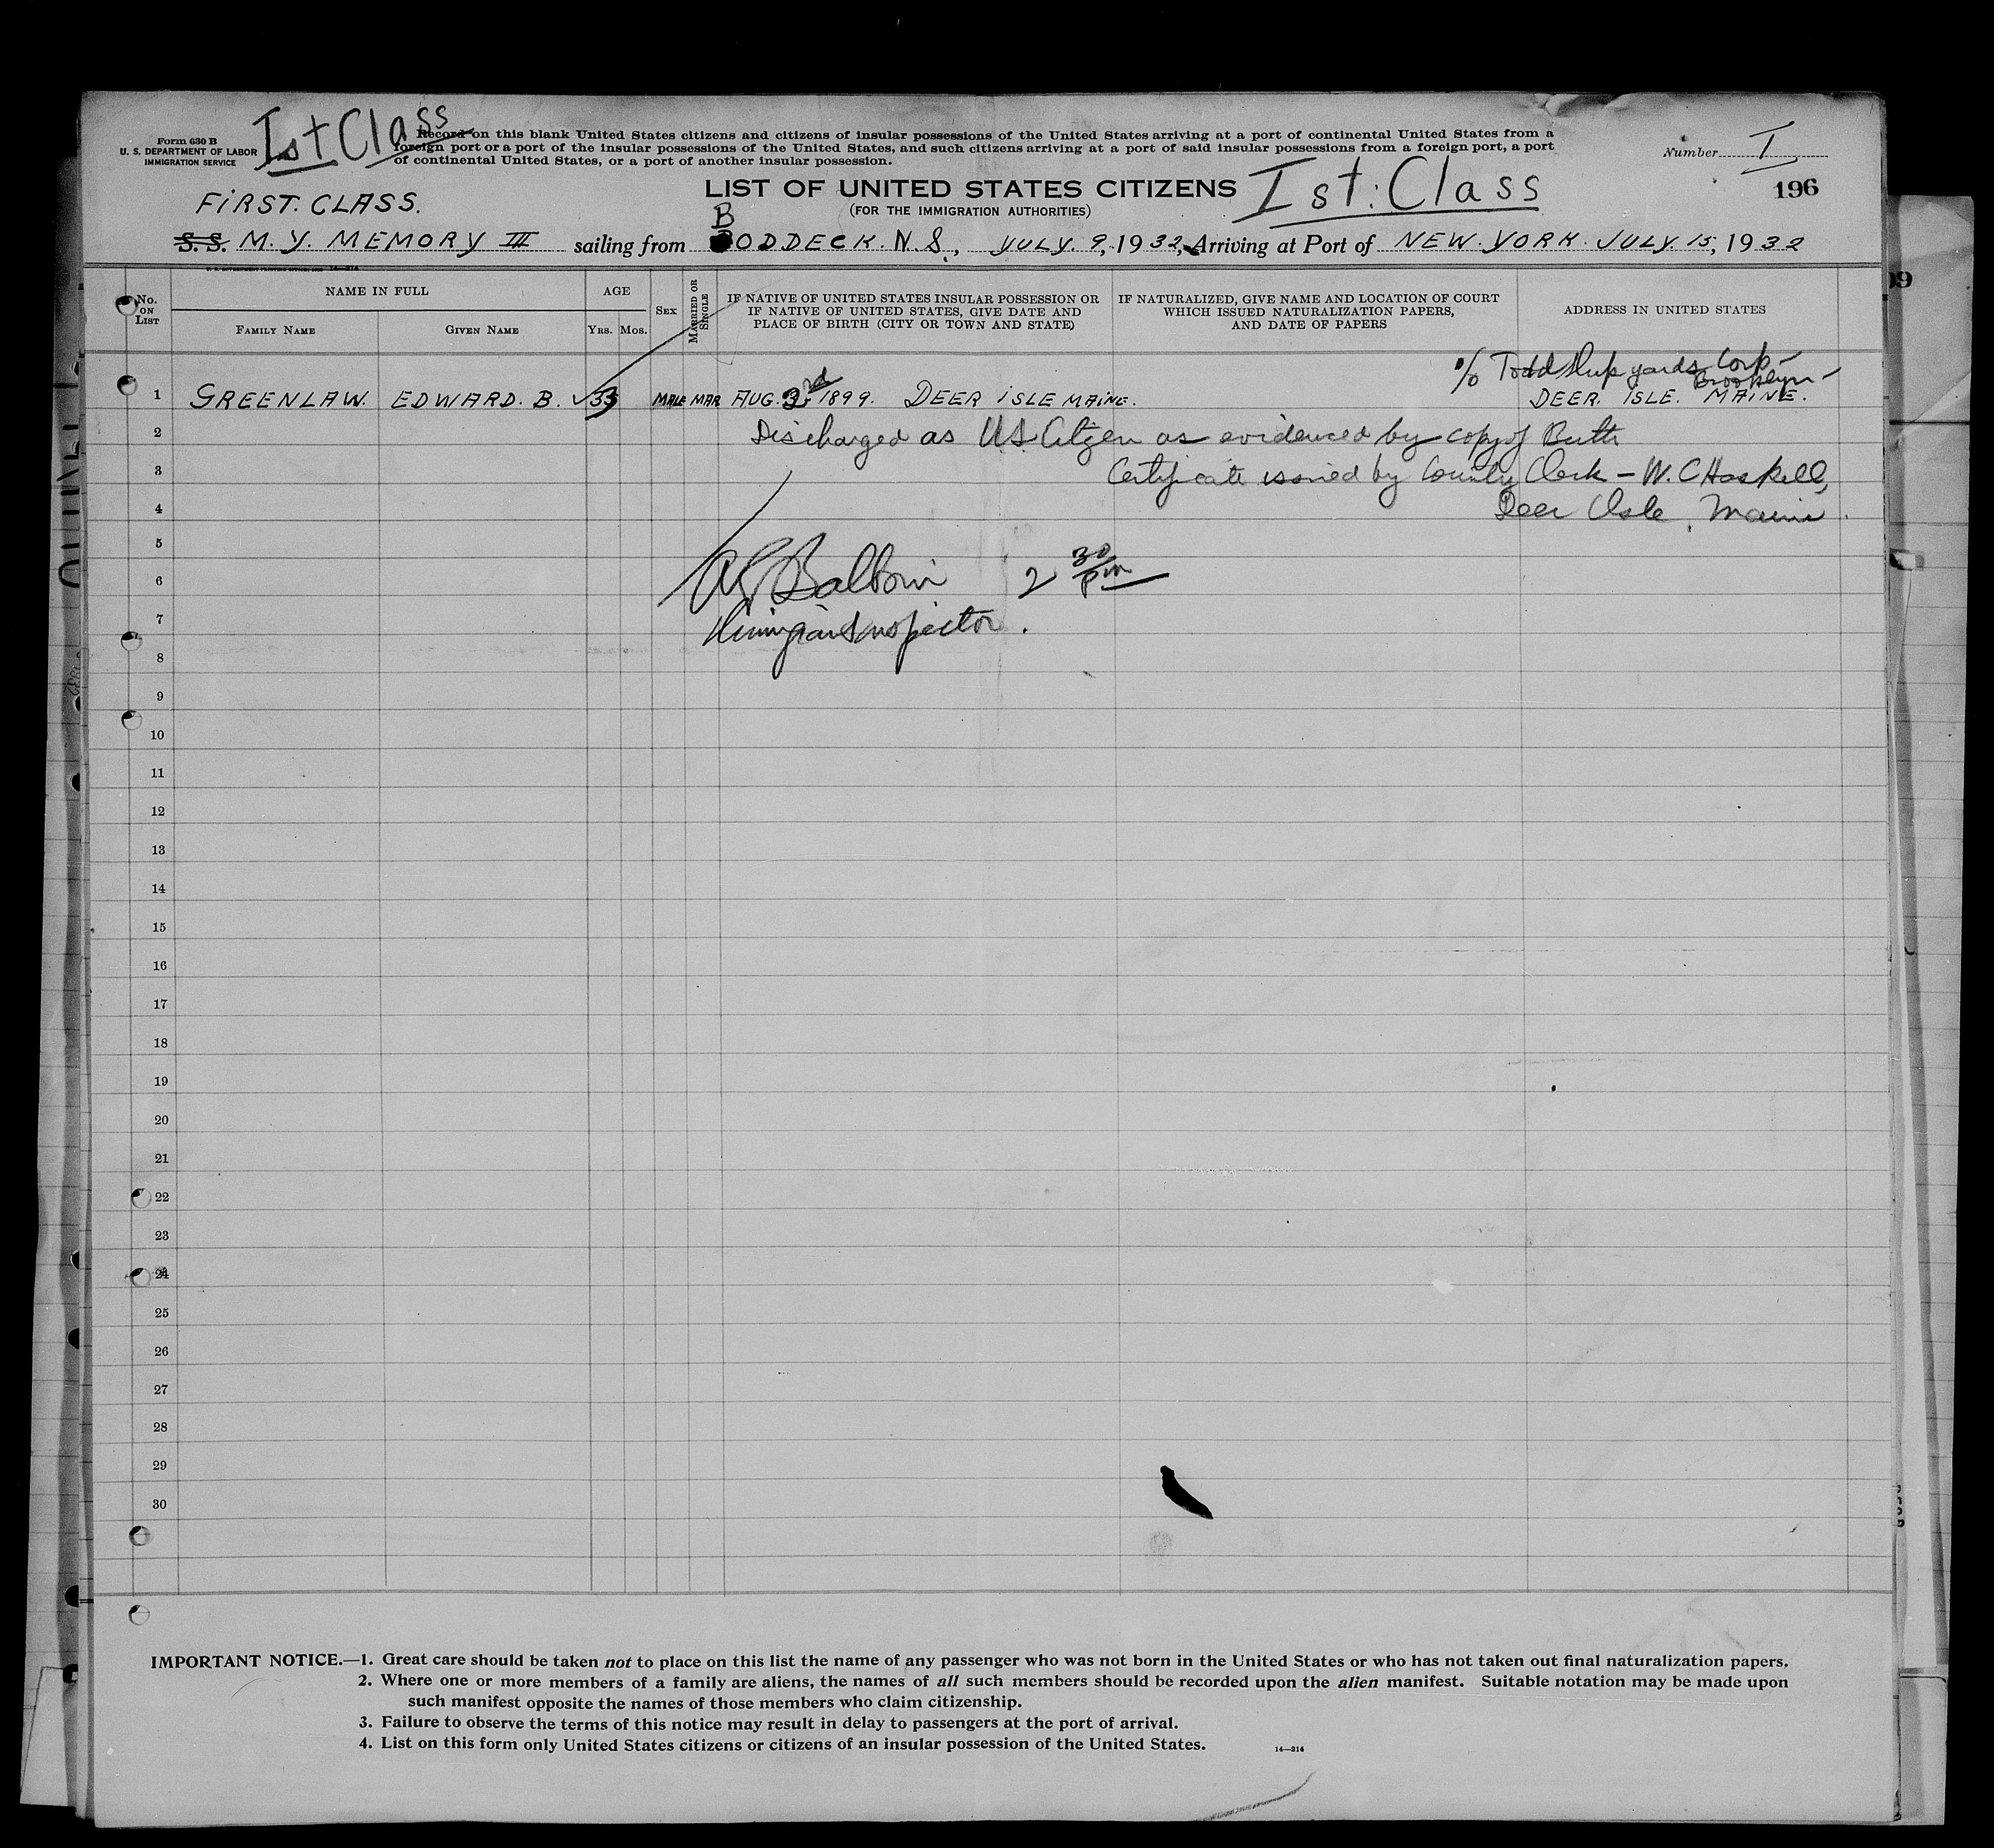 Ist Class
Form 630 B
U. S. DEPARTMENT OF LABOR
IMMIGRATION SERVICE
Record on this blank United States citizens and citizens of insular possessions of the United States arriving at a port of continental United States from a
foreign port or a port of the insular possessions of the United States, and such citizens arriving at a port of said insular possessions from a foreign port, a port
of continental United States, or a port of another insular possession.
Number I
196
LIST OF UNITED STATES CITIZENS
Ist: Class
(FOR THE IMMIGRATION AUTHORITIES)
FIRST. CLASS.
S. S. M. Y. MEMORY III sailing from BODDECK. N. S., JULY. 9, 1932, Arriving at Port of NEW. YORK. JULY. 15, 1932
No. ON LIST
NAME IN FULL
FAMILY NAME
GIVEN NAME
AGE
YRS. MOS.
SEX
MARRIED OR SINGLE
IF NATIVE OF UNITED STATES INSULAR POSSESSION OR
IF NATIVE OF UNITED STATES, GIVE DATE AND
PLACE OF BIRTH (CITY OR TOWN AND STATE)
IF NATURALIZED, GIVE NAME AND LOCATION OF COURT
WHICH ISSUED NATURALIZATION PAPERS,
AND DATE OF PAPERS
ADDRESS IN UNITED STATES
% Todd Shipyards Corp—
Brooklyn—
1 GREENLAW. EDWARD. B. 33 MALE MAR AUG. 3rd 1899. DEER ISLE MAINE. DEER. ISLE. MAINE.
2 Discharged as U.S. Citizen as evidenced by copy of Birth
3 Certificate issued by County Clerk – W. C Haskell,
4 Deer Isle, Maine.
5
6 Baldwin 2 30 pm
7 Immigrant Inspector.
8
9
10
11
12
13
14
15
16
17
18
19
20
21
22
23
24
25
26
27
28
29
30
IMPORTANT NOTICE.—1. Great care should be taken not to place on this list the name of any passenger who was not born in the United States or who has not taken out final naturalization papers.
2. Where one or more members of a family are aliens, the names of all such members should be recorded upon the alien manifest. Suitable notation may be made upon
such manifest opposite the names of those members who claim citizenship.
3. Failure to observe the terms of this notice may result in delay to passengers at the port of arrival.
4. List on this form only United States citizens or citizens of an insular possession of the United States.
14—214